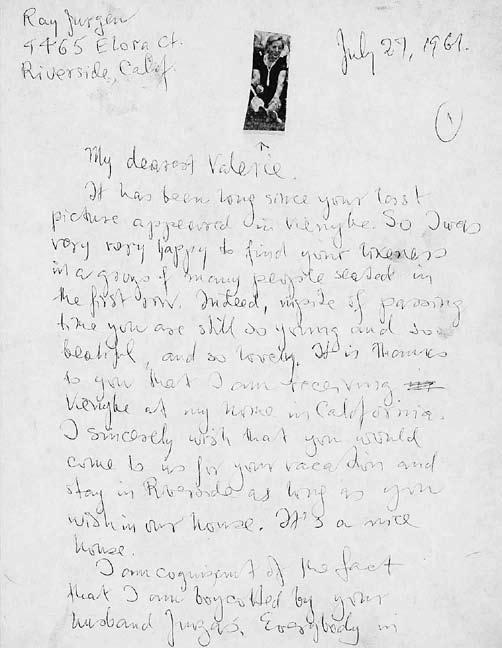 Ray Jurgen
4465 Elora Ct.
Riverside, Calif.
July 27, 1961.
1
My dearest Valerie.
It has been long since your last
picture appeared in Vienybe. So I was
very very happy to find your likeness
in a group of many people seated in
the first row. Indeed, inspite of passing
time you are still so young and so
beatiful, and so lovely. It is thanks
to you that I am receiving
Vienybe at my home in California.
I sincerely wish that you would
come to us for your vacation and
stay in Riverside as long as you
wish in our house. It's a nice
house.
I am cognisent of the fact
that I am boycotted by your
husband Juozas. Everybody in